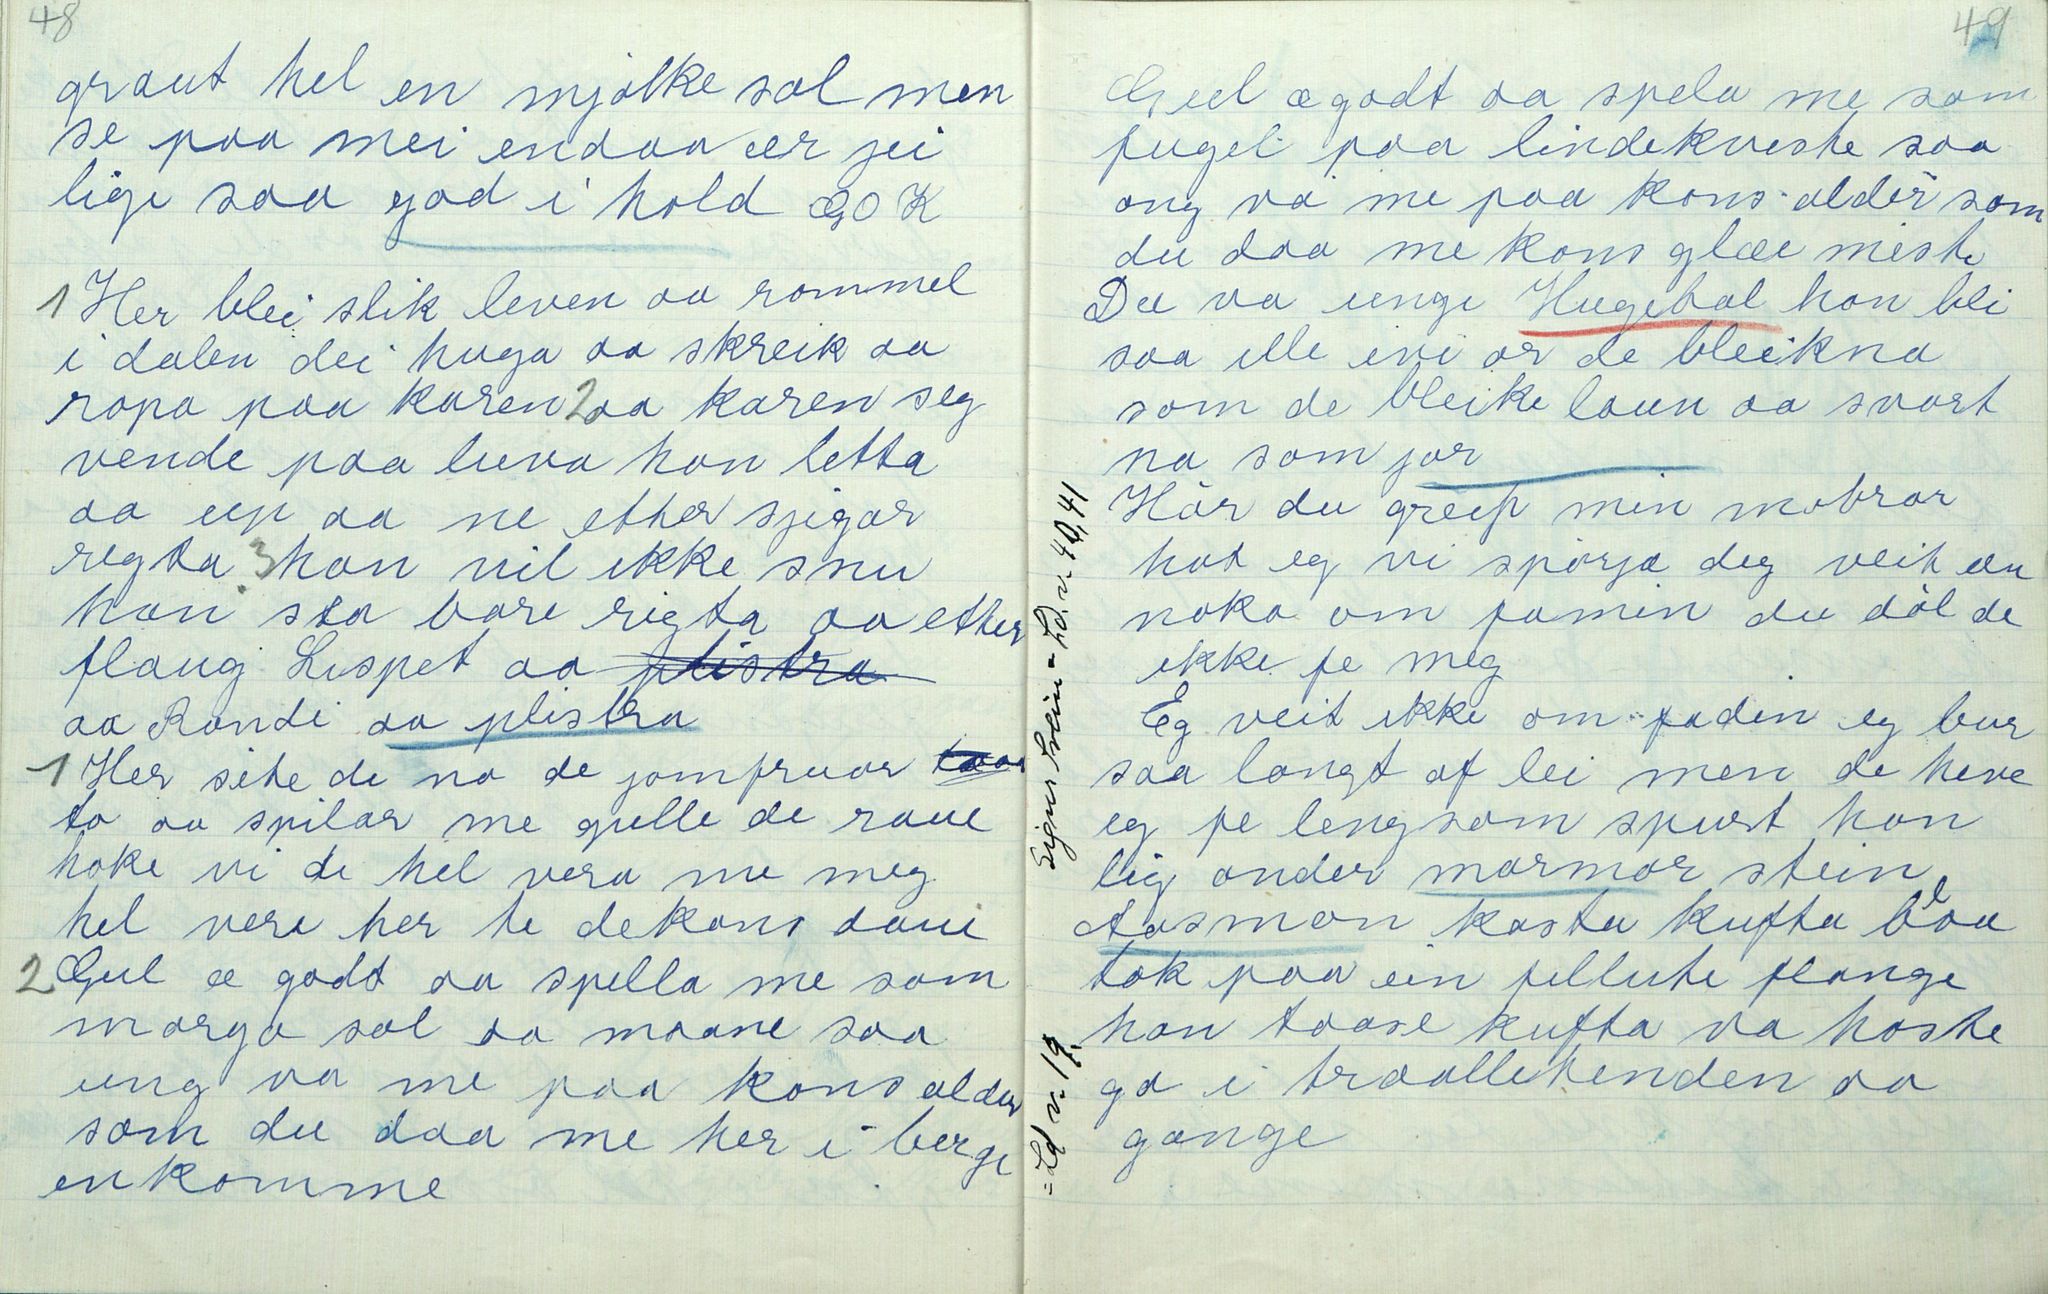 48
graut hel en mjølke sol men
se paa mei endaa er jei
lige saa god i hold OK
1 Her blei slik leven aa rommel
i dalen dei huga aa skreik aa
ropa paa karen 2 aa karen seg
vende paa luva han letta
aa up aa ne etter sjigar
regta 3 han vil ikke snu
han sta bare rigta aa etter
flaug Lispet aa plistra
aa Randi aa plistra
1 Her site de na de jomfruar
to aa spilar me gulle de raue
hoke vi de hel vera me meg
hel vere her te dekans daue
2 Gul æ godt aa spella me som
morgo sol aa maane saa
ung va me paa kons alder
som du daa me her i berge
en komme
49
Geel æ godt aa spela me som
fugel paa lindekveste saa
ong va me paa kons alder som
du daa me kons glæe miste
De va unge Hugebal han bli
saa ille ivi or de bleikna
som de bleike laun aa svart
na som jor
Hår du greip min mobror
hot eg vi spørja deg veit du
noko om famin du døl de
ikke fe meg
Eg veit ikke om fadin eg bur
saa langt af lei men de heve
eg fe leng som spurt han
lig onder marmor stein
Aasmon kasta kufta blaa
tok paa ein fellute flange
han taase kufta va hoste
ga i traalletenden aa
gange
Sigur Svein = Ld. v. 40, 41
= Ld v. 19.